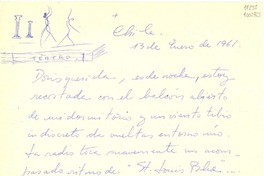 Chile
13 de Enero de 1961.
TEATRO
Doris querida, es de noche, estoy
recostada con el balcón abierto
de mi dormitorio y un viento tibio
indiscreto da vueltas en torno mío.
La radio toca suavemente un acom-
pasado ritmo de "St. Louis Blue"...